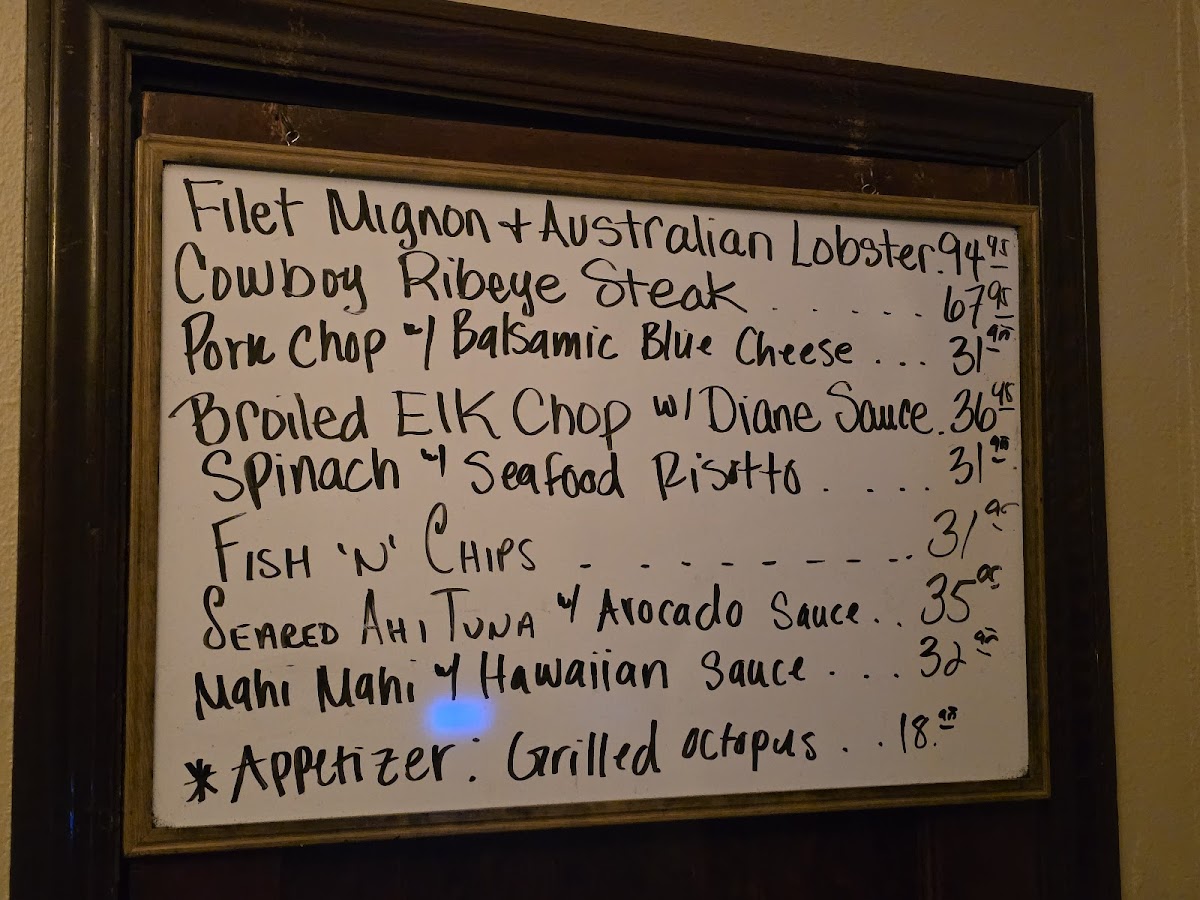 Filet Mignon + Australian Lobster. 94 95
Cowboy Ribeye Steak . . . . . 67 95
Pork Chop w/ Balsamic Blue Cheese . . . 31 95
Broiled Elk Chop w/ Diane Sauce . 36 95
Spinach w/ Seafood Risotto . . . . 31 95
Fish 'N' Chips . - - - - - - - .. 31 95
Seared Ahi Tuna w/ Avocado Sauce . . 35 95
Mahi Mahi w/ Hawaiian Sauce . . . 32 95
* Appetizer : Grilled octopus . . 18. 95